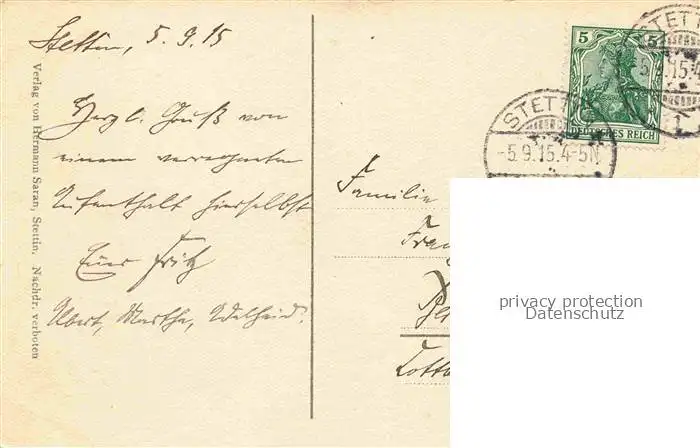 Stettin, 5.9.15
Herzl. Gruß von
einem verregneten
Aufenthalt hierselbst
Euer Fritz
Albert, Martha, Adelheid.
Verlag von Hermann Saran, Stettin. Nachdr. verboten
5 5
DEUTSCHES REICH
STETTIN
-5.9.15.4-5N
STETT
Familie
privacy protection
Datenschutz